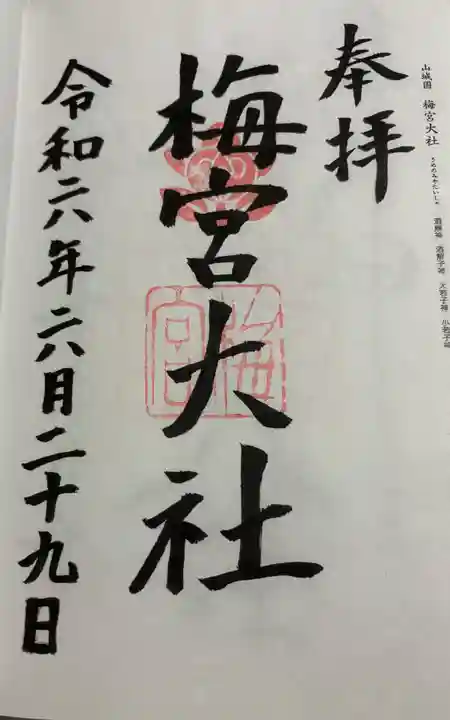 山城國 梅宮大社 うめのみやたいしゃ 酒解神 酒解子神 大若子神 小若子神
奉拝
梅宮大社
梅宮
令和六年六月二十九日